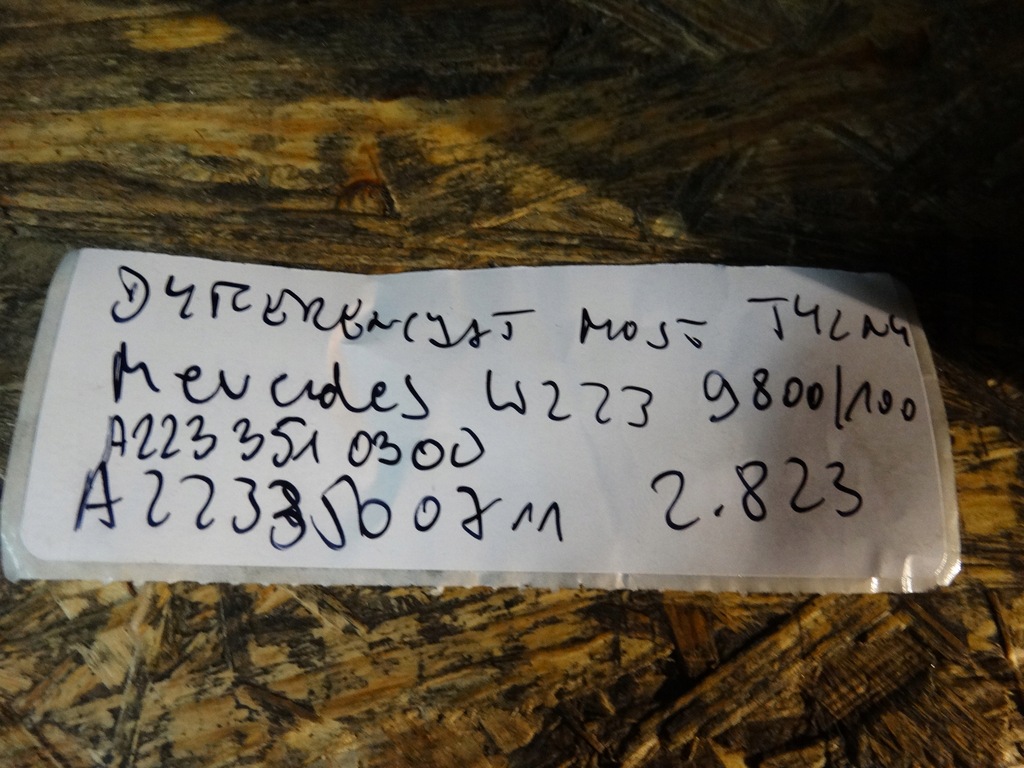 DYFERENCYJAŁ MOST TYLNY
Mercedes W223 9800/100
A223 351 0300
A2233500711 2.823